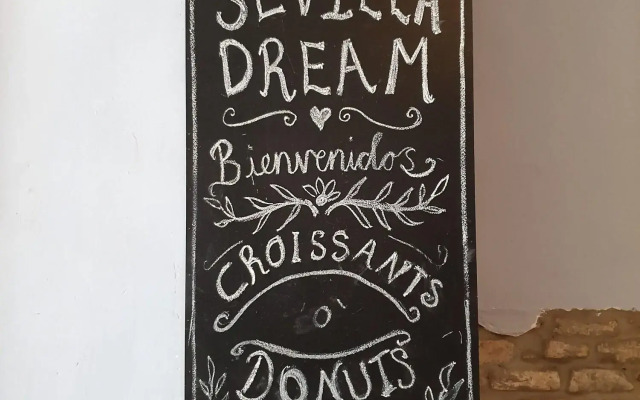 SEVILLA
DREAM
Bienvenidos
CROISSANTS
O
DONUTS